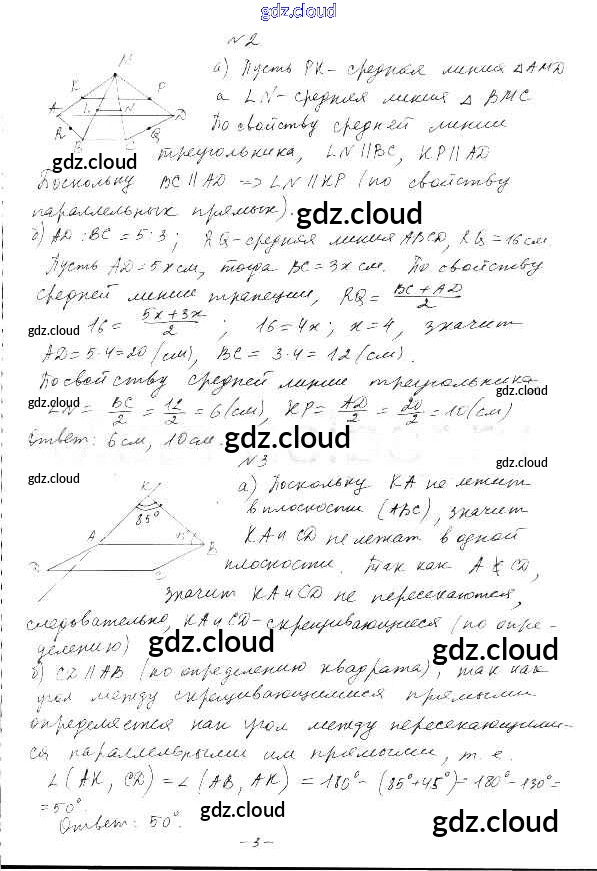 gdz.cloud
№2
M
K P
A L N D
R B C Q
а) Пусть PK - средняя линия △AMD
а LN - средняя линия △ BMC
По свойству средней линии
gdz.cloud треугольника, LN∥BC, KP∥AD
Поскольку BC∥AD => LN∥KP (по свойству
параллельных прямых). gdz.cloud gdz.cloud
б) AD:BC = 5:3; RQ-средняя линия ABCD, RQ=16 см.
Пусть AD=5x см, тогда BC=3x см. По свойству
средней линии трапеции, RQ = BC+AD/2
gdz.cloud 16 = 5x+3x/2 ; 16=4x; x=4, значит gdz.cloud
AD=5·4=20 (см), BC = 3·4=12 (см).
По свойству средней линии треугольника
gdz.cloud gdz.cloud
LN = BC/2 = 12/2 = 6 (см), KP= AD/2 = 20/2 = 10 (см)
Ответ: 6 см, 10 см. gdz.cloud
№3
gdz.cloud gdz.cloud
K
85°
A 45° B
D C
а) Поскольку KA не лежит
в плоскости (ABC), значит
KA и CD не лежат в одной
плоскости. Так как A ∉ CD,
gdz.cloud
значит KA и CD не пересекаются,
следовательно, KA и CD - скрещивающиеся (по опре-
делению) gdz.cloud gdz.cloud
б) CD∥AB (по определению квадрата), так как
угол между скрещивающимися прямыми
определяется как угол между пересекающими-
ся параллельными им прямыми, т.е.
∠(AK, CD) = ∠(AB, AK) = 180°-(85°+45°)=180°-130°=
=50°.
Ответ: 50°. gdz.cloud gdz.cloud
- 3 -
gdz.cloud